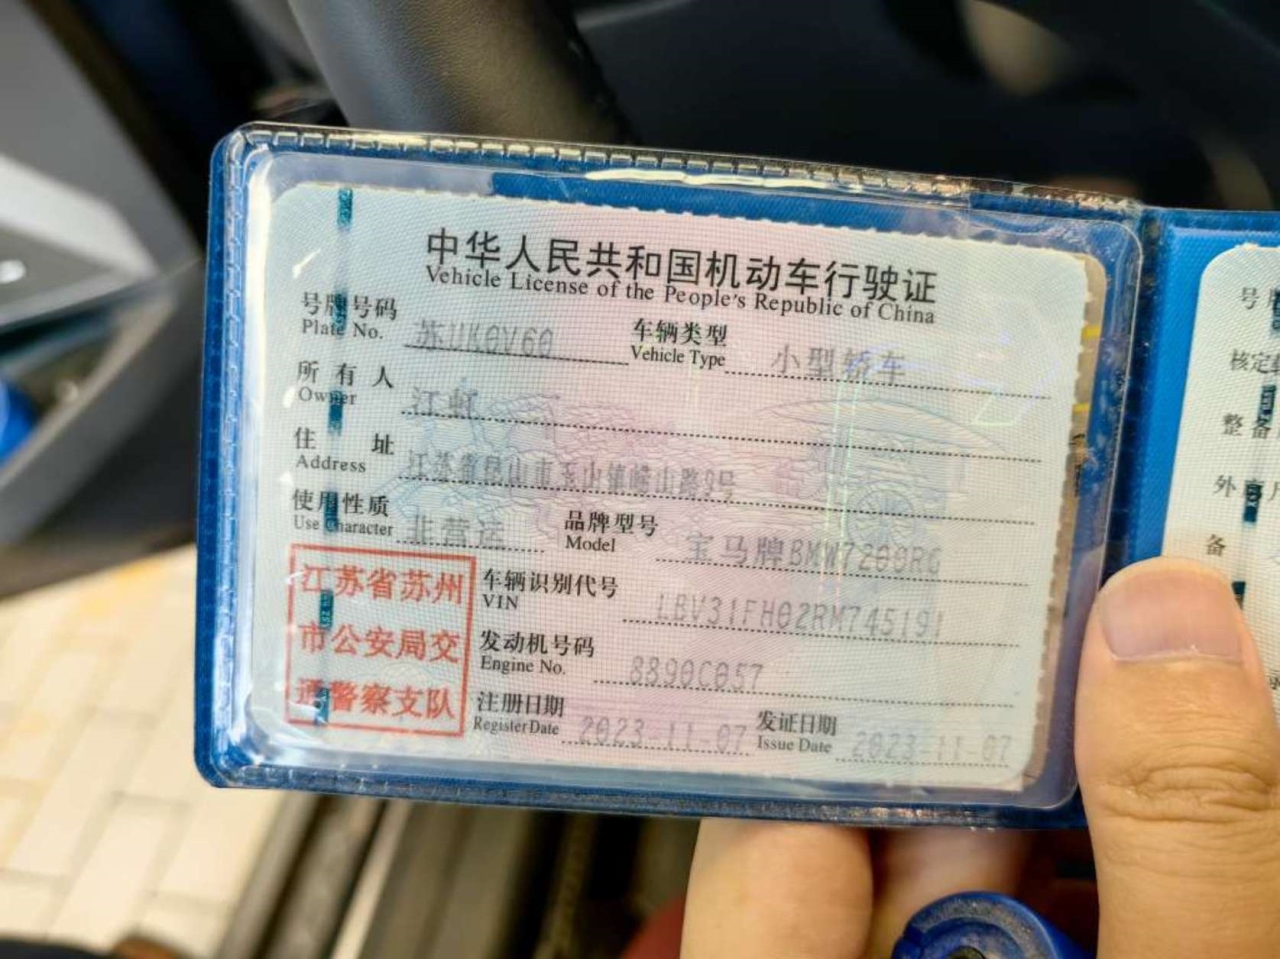 中华人民共和国机动车行驶证
Vehicle License of the People's Republic of China
号牌号码 Plate No. 苏UK0V60 车辆类型 Vehicle Type 小型轿车
所有人 Owner 江虹
住址 Address 江苏省昆山市玉山镇崂山路9号
使用性质 Use Character 非营运 品牌型号 Model 宝马牌BMW7200RG
江苏省苏州
市公安局交
通警察支队
车辆识别代号 VIN LBV31FH02RM745191
发动机号码 Engine No. 8890C057
注册日期 Register Date 2023-11-07 发证日期 Issue Date 2023-11-07
号
核定
整备
外
备